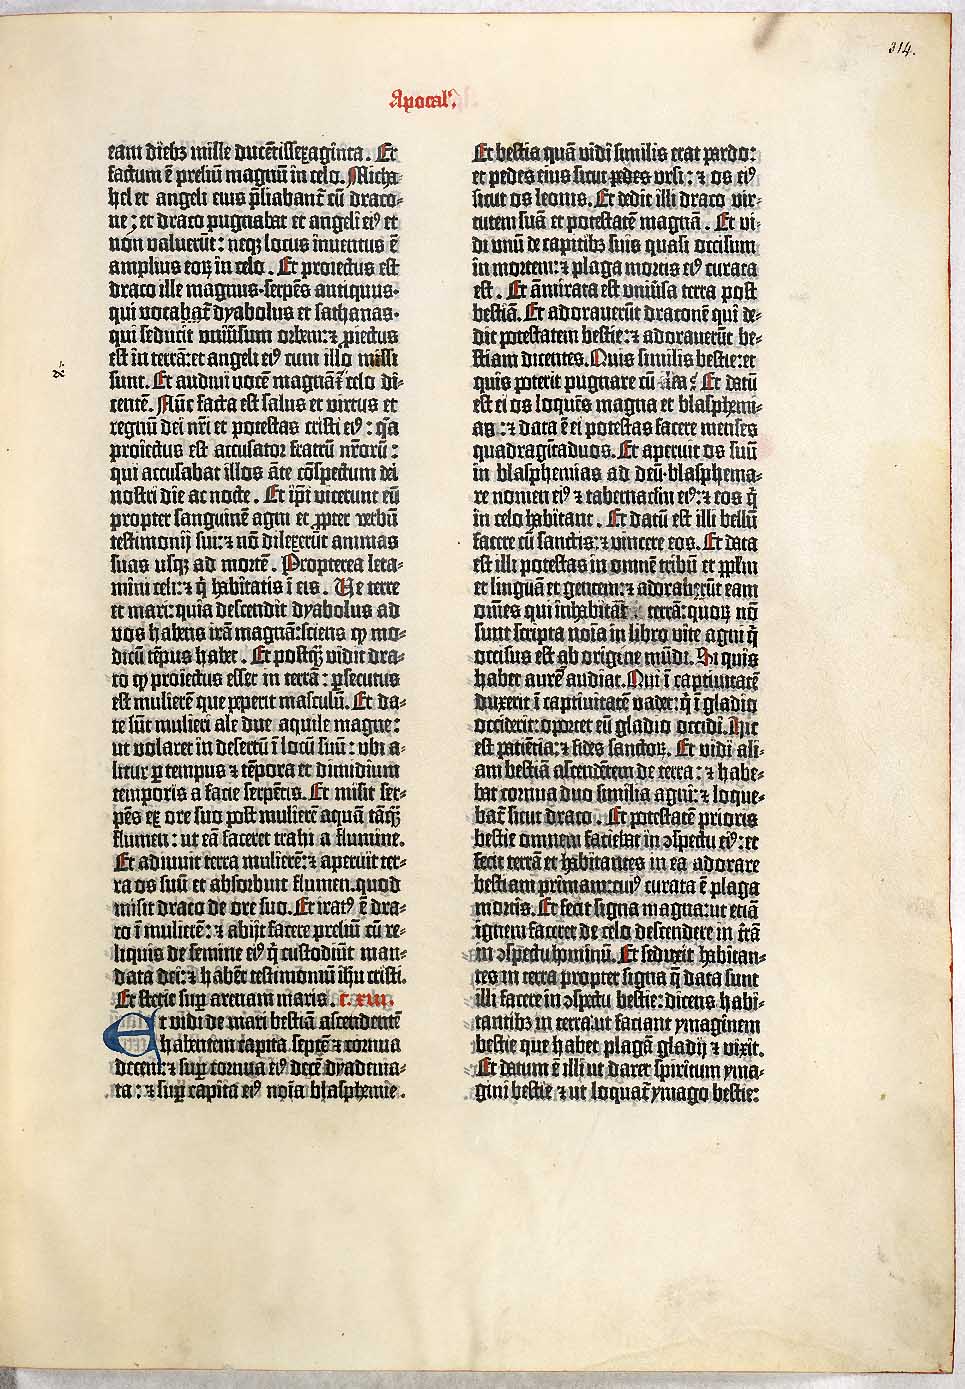 314.
Apocal'.
eam diebꝫ mille ducētissexaginta. Et
factum ē preliū magnū in celo. Micha-
hel et angeli eius p̄liabant̄ cū draco-
ne; et draco pugnabat et angeli eiꝰ et
non valuerūt: neqꝫ locus inventus ē
amplius eoꝝ in celo. Et proiectus est
draco ille magnus·serpēs antiquus·
qui vocabat̄ dyabolus et sathanas·
qui seducit univ̄sum orbem: ⁊ ꝓiectus
est in terrā: et angeli eiꝰ cum illo missi
sunt. Et audivi vocē magnā ī celo di-
centē. Nūc facta est salus et virtus et
regnū dei nr̄i et potestas cristi eiꝰ: q̄a
proiectus est accusator fratrū nr̄orū:
qui accusabat illos āte cōspectum dei
nostri die ac nocte. Et ip̄i vicerunt eū
propter sanguinē agni et ꝓpter verbū
testimonij sui: ⁊ nō dilexerūt animas
suas usqꝫ ad mortē. Propterea leta-
mini celi: ⁊ q̄ habitatis ī eis. Ve terre
et mari: quia descendit dyabolus ad
vos habens irā magnā: sciens ꝙ mo-
dicū tēpus habet. Et postq̄ꝫ vidit dra-
co ꝙ proiectus esset in terrā: ꝑsecutus
est mulierē que peperit masculū. Et da-
te sūt mulieri ale due aquile magne:
ut volaret in desertū ī locū suū: ubi a-
litur ꝑ tempus ⁊ tēpora et dimidium
temporis a facie serpētis. Et misit ser-
pēs ex ore suo post mulierē aquā tāq̄ꝫ
flumen: ut eā faceret trahi a flumine.
Et adiuvit terra mulierē: ⁊ aperuit ter-
ra os suū et absorbuit flumen·quod
misit draco de ore suo. Et iratꝰ ē dra-
co ī mulierē: ⁊ abijt facere preliū cū re-
liquis de semine eiꝰ q̄ custodiūt man-
data dei: ⁊ habēt testimonium ihū cristi.
Et stetit suꝑ arenam maris. c. xiii.
Et vidi de mari bestiā ascendentē
habentem capita septē ⁊ cornua
decem: ⁊ suꝑ cornua eiꝰ decē dyadema-
ta: ⁊ suꝑ capita eiꝰ noīa blasphemie.
Et bestia quā vidi similis erat pardo:
et pedes eius sicut pedes ursi: ⁊ os eiꝰ
sicut os leonis. Et dedit illi draco vir-
tutem suā et potestatē magnā. Et vi-
di unū de capitibꝫ suis quasi occisum
in mortem: ⁊ plaga mortis eiꝰ curata
est. Et āmirata est univ̄sa terra post
bestiā. Et adoraverūt draconē qui de-
dit potestatem bestie: ⁊ adoraverūt be-
stiam dicentes. Quis similis bestie: et
quis poterit pugnare cū Et datū
est ei os loquēs magna et blasphemi-
as: ⁊ data ē ei potestas facere menses
quadragītaduos. Et aperuit os suū
in blasphemias ad deū·blasphema-
re nomen eiꝰ ⁊ tabernaclm̄ eiꝰ: ⁊ eos q̄
in celo habitant. Et datū est illi bellū
facere cū sanctis: ⁊ vincere eos. Et data
est illi potestas in omnē tribū et pplm̄
et linguā et gentem: ⁊ adoraverūt eam
om̄es qui inhabitāt terrā: quoꝝ nō
sunt scripta noīa in libro vite agni q̄
occisus est ab origine mūdi. Si quis
habet aurē audiat. Qui ī captivitatē
duxerit ī captivitatē vadet: q̄ ī gladio
occiderit: oportet eū gladio occidi. Hic
est patiētia: ⁊ fides sanctoꝝ. Et vidi ali-
am bestiā ascendētem de terra: ⁊ habe-
bat cornua duo similia agni: ⁊ loque-
bat̄ sicut draco. Et potestatē prioris
bestie omnem faciebat in ꝯspectu eiꝰ: et
fecit terrā et habitantes in ea adorare
bestiam primam: cuiꝰ curata ē plaga
mortis. Et fecit signa magna: ut etiā
ignem faceret de celo descendere in t̄rā
in ꝯspectu hominū. Et seduxit habitan-
tes in terra propter signa q̄ data sunt
illi facere in ꝯspectu bestie: dicens habi-
tantibꝫ in terra: ut faciant ymaginem
bestie que habet plagā gladij ⁊ vixit.
Et datum ē illi ut daret spiritum yma-
gini bestie ⁊ ut loquat̄ ymago bestie: